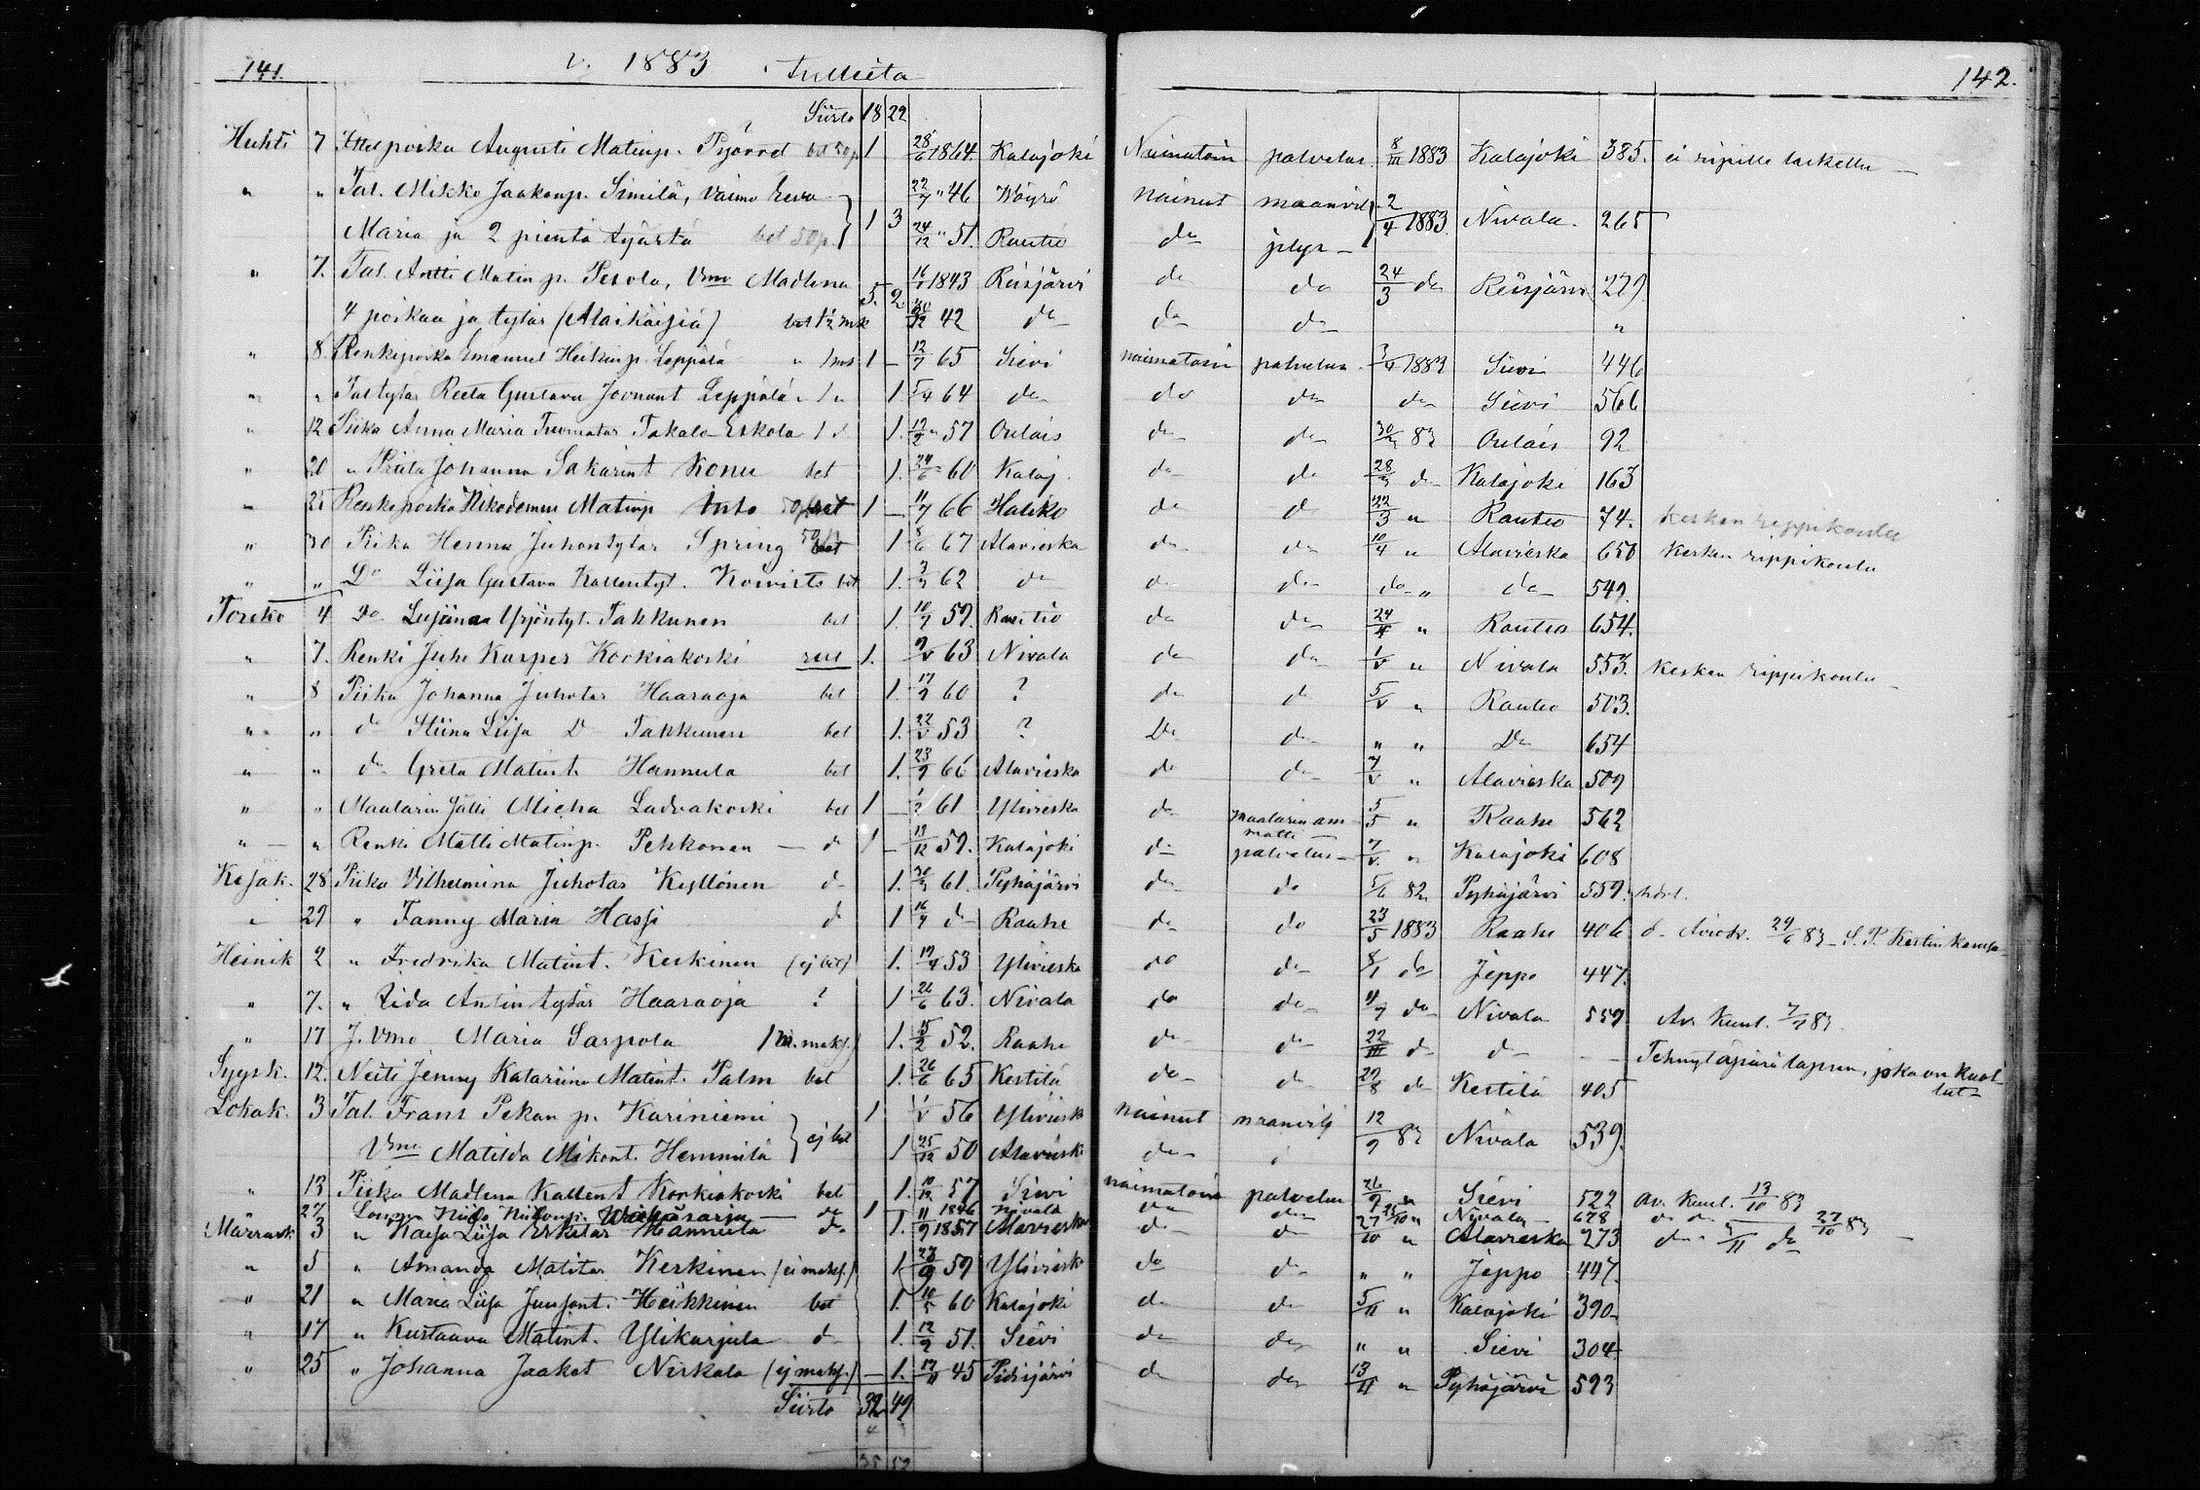 141. v. 1883 tulleita 142.
Siirto 18 22
Huhti 7 Itsel.poika Augusti Matinp. bet 50 p 1 28/6 1864. Kalajoki Naimatoin palvelus 8/III 1883 Kalajoki 385. ei ripille laskettu
" " Tal. Mikko Jaakonp. Similä, vaimo Eeva 22/7 " 46 Wöyrö nainut maanvilj.
Maria ja 2 pientä tyärtä bet 50 p 1 3 24/12 " 51. Rautio da 2/4 1883. Nivala. 265
" 7. Tal. Antti Matin p. Perola, Vmo Madlena 16/1 1843 Reisjärvi da da 24/3 da Reisjärvi 279
4 poikaa ja tytär (Alaikäisiä) bet 1½ mk 5. 2 42 da da da "
" 8 Renkipoika Emanuel Heikin p. Leppälä 1 – 12/7 65 Sievi naimatoin palvelus 1883 Sievi 446
" " Tal tytär Reeta Gustava Joonant Leppälä 1 5/4 64 da da da da Sievi 566
" 12 Piika Anna Maria Tuomatar Takalo-Eskola 1. 12/2 " 57 Oulais da da 30/3 83 Oulais 92
" 20 " Priita Johanna Sakarint Konu bet 1. 24/6 60 Kalaj. da da 28/3 da Kalajoki 163
" 25 Renkipoika Nikodemus Matinp Into 50 p bet 1 – 11/7 66 Haliko da da 22/3 " Rautio 74. Kesken rippikoulu
" 30 Piika Henna Juhontytar Spring 50 p bet 1 5/6 67 Alavieska da da 10/4 " Alavieska 650 Kesken rippikoulu
" " Do Liisa Gustava Kallentyt. Koivisto bet 1. 3/3 62 da da da da " da 549.
Toreko 4 Do. Lusiina Yrjöntyt. Takkunen bet 1. 10/7 59. Rautio da da 24/4 " Rautio 654.
" 7. Renki Juho Kasper Korkiakoski 1. 9/V 63 Nivala da da 1/V " Nivala 553. Kesken rippikoulu
" 8 Piika Johanna Juhotar Haaraoja bet 1. 17/9 60 ? da da 5/V " Rautio 503.
" " da Stiina Liisa D Takkunen bet 1. 22/V 53 ? Da da " " Da 654
" " da Greta Matint. Hannula bet 1. 23/9 66 Alavieska da da 7/V " Alavieska 509
" " Maalarin sälli Micha Ladvakoski bet 1 – 1/2 61 Ylivieska da maalarin ammatti 5/5 " Raahe 562
" " Renki Matti Matinp. Pekkonen da 1 – 13/12 59. Kalajoki da palvelus 7/V " Kalajoki 608
Kesäk. 28 Piika Vilhelmina Juhotar Kyllönen d 1. 30/3 61. Pyhäjärvi da do 5/6 82 Pyhäjärvi 559.
" 29 " Fanny Maria Hassi d 1 16/4 d Raahe da do 23/5 1883 Raahe 406 d. Aviok. 24/6 83 S. P. Kestin kanssa
Heinik 2 " Fredrika Matint. Keskinen (ej bet) 1. 17/4 53 Ylivieska do da 8/1 da Jeppo 447.
" 7. " Iida Antin tytär Haaraoja ? 1 21/6 63. Nivala do da 4/7 da Nivala 559. Av. Kuul. 7/7 83.
" 17 J. Vmo Maria Sarpola (m. maks.) 1. 15/2 52. Raahe da da 22/III d d – Tehnyt äpärä lapsen, joka on kuollut
Syysk. 12. Neiti Jenny Katariina Matint. Palm bet 1. 26/6 65 Kestilä da da 29/8 da Kestilä 405
Lokak. 3 Tal. Frans Pekan p. Kariniemi 1 1/V 56 Yliviesk nainut maanvilj 12/9 83 Nivala 539.
Vmo Matilda Mikont. Hemmilä ej bet 1 25/12 50 Alaviesk da
" 13 Piika Madlena Kallent Korkiakoski bet 1. 10/12 57 Sievi naimatoin palvelus 26/9 " Sievi 522 av. Kuul. 13/10 83
27 Loppu Niilo Niilonp. da 1 11 1846 Nivala da da Nivala 678 d d 27/10 83
Marrask 3 " Kaisa Liisa Erkitar Hannula da 1. 1/9 1857 Alavieska da da 27/10 " Alavieska 273 da " 5/11 da
" 5 " Amanda Matitar Keskinen (ei maks.) 1 59 Ylivieska da da " " Jeppo 447.
" 21 " Maria Liisa Juusont. Heikkinen bet 1. 10/5 60 Kalajoki da da 5/11 " Kalajoki 390
" 17 " Kustaava Matint. Ylikarjula d 1. 12/9 51. Sievi da da " " Sievi 304.
" 25 " Johanna Jaakot Nirkala (ej maks.) – 1. 17/11 45 Pidisjärvi da da 13/11 " Pyhäjärvi 523
Siirto 32 49
4 3
35 52